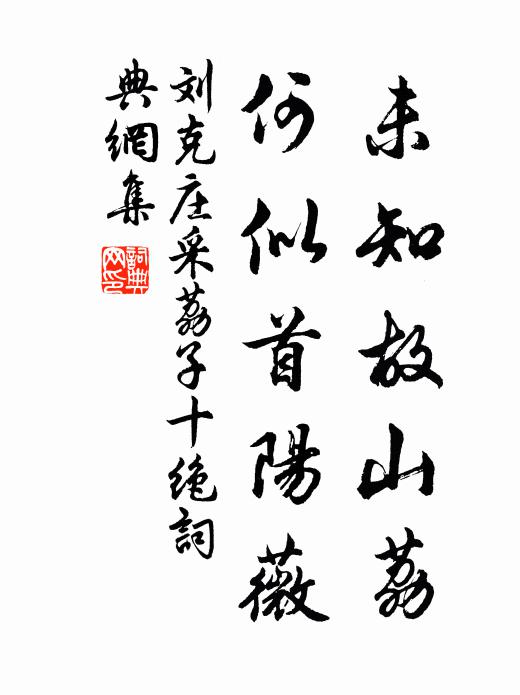 未知故山荔
何似首陽薇
刘克庄采荔子十绝詞
典網集
詞典
网印